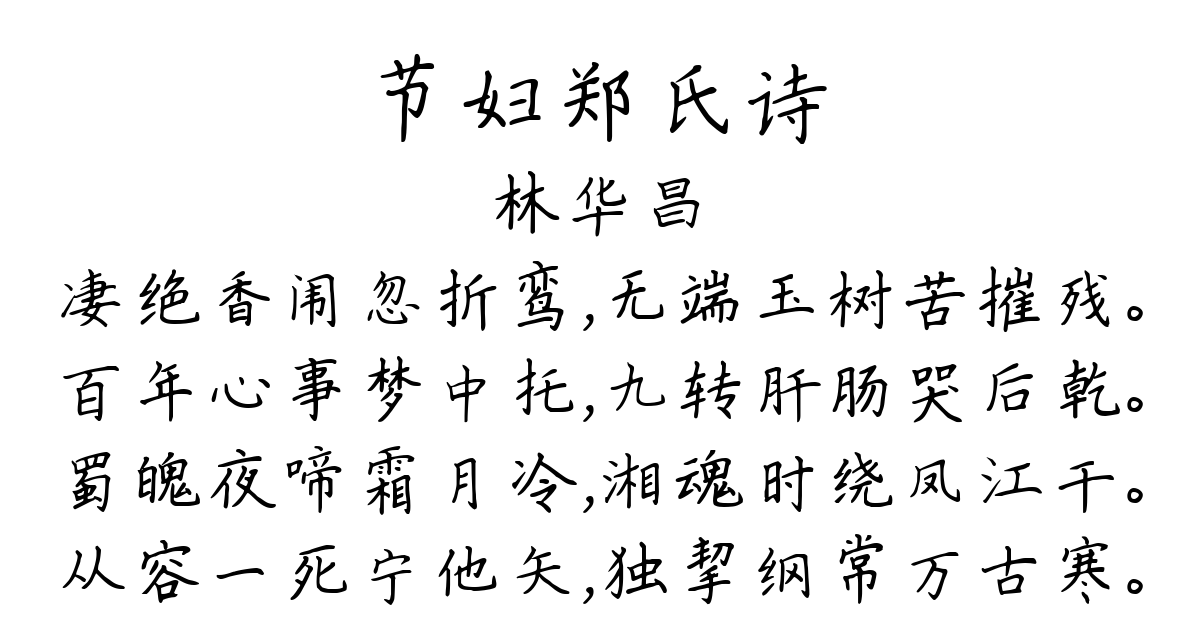 节妇郑氏诗
林华昌
凄绝香闹忽折鸾,无端玉树苦摧残。
百年心事梦中托,九转肝肠哭后乾。
蜀魄夜啼霜月冷,湘魂时绕凤江干。
从容一死宁他矢,独挈纲常万古寒。